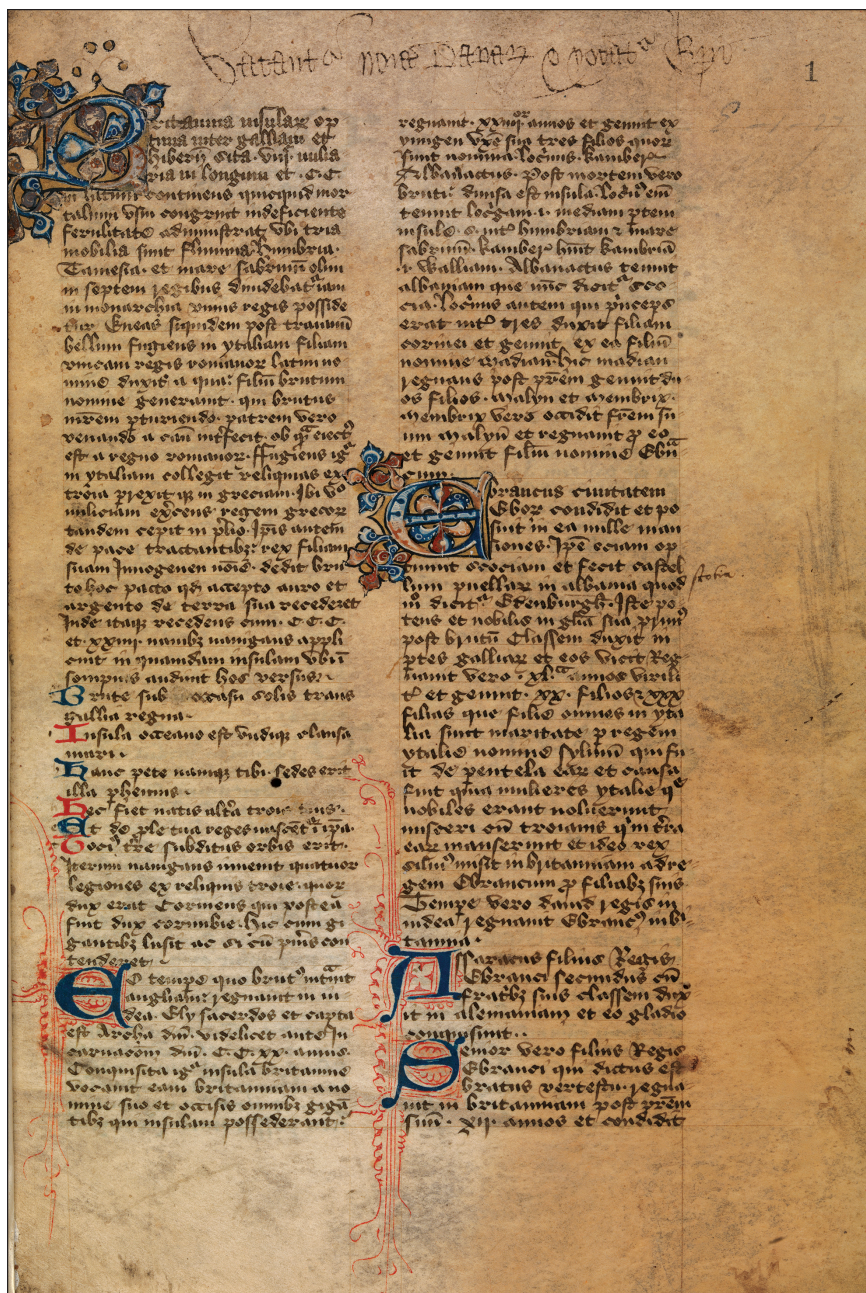 1
Britannia insularum op
tima inter galliam et
hiberniā sita. viij. milia
ria in longum et . C.C.
in latum continens quicquid mor
talium vsui congruit indeficiente
fertilitate administrat. vbi tria
nobilia sunt flumina. humbria.
Tamesia. et mare sabrinū olim
in septem regibus diuidebat^r iam
in monarchia vnius regis posside
tur. Eneas siquidem post troianū
bellum fugiens in ytaliam filiam
vnicam regis romanor latini no
mine duxit. a qua. filiū brutum
nomine generauit. qui brutus
mrem pturiendo. patrem vero
venando a casu int^rfecit. ob q^am eiect^s
est a regno romanor. ffugiens ig^r
in ytaliam collegit reliquias ex
troia prexit qz in greciam. Ibi v^o
miliciam excens. regem grecor
tandem cepit in plio. Ipīs autem
de pace tractantibz. rex filiam
suam Innogenen noīe. dedit bru
to hoc pacto qd accepto auro et
argento de terra sua recederet
Inde itaqz recedens cum . C.C.C.
et . xxiiii. nauibz nauigans appli
cuit in quandam insulam vbi ī
sompnis audiuit hos versus.
Brute sub occasu solis trans
gallia regna.
Insula occeano est vndiqz clausa
mari.
Hanc pete namqz tibi. sedes erit
illa phennis.
Hec fiet natis alt^a troia tuis.
Et de ple tua reges nascent^r ī ipa.
Toci^s tre subditus orbis erit.
Iterum nauigans inuenit quatuor
legiones ex reliquis troie. quor
dux erat Corineus qui postea
fuit dux cornubie. hic cum gi
gantibz lusit ac si cū pueris con
tenderet.
Eo tempe quo brut^s intrauit
angliam. regnauit in iu
dea. Ely sacerdos et capta
est Archa dni. videlicet ante In
carnacōem dni. C.C. xx. annis.
Conquisita ig^r insula britannie
vocauit eam britanniam a no
mine suo et occisis omnibz gigā
tibz qui insulam possederant.
regnauit. xxiiij^or annos et genuit ex
ynogen vxē sua tres filios quor
sunt nomina. locrinus. kamber
Albanactus. Post mortem vero
bruti. diuisa est insula. locrin^s em
tenuit locrgiam. i. mediam ptem
insule. s. int^r humbriam z mare
sabrinū. kamber huit kambriā
.i. walliam. Albanactus tenuit
albaniam que nūc dicit^r sco
cia. locrinus autem qui pnceps
erat int^r tres duxit filiam
corinei et genuit ex ea filiū
nomine madian. hic madian
regnans post prem genuit du
os filios. malyn et membrix.
membrix vero occidit frem su
um malynū et regnauit p eo
et genuit filiū nomine Ebrā
cum.
Ebrancus ciuitatem
Ebor condidit et po
suit in ea mille man
siones. Ipe eciam op
tinuit scociam et fecit castel
lum puellar in albania quod
mō dicit^r Edenburgh. Iste po
tens et nobilis in glia sua prim^s
post brutū Classem duxit in
ptes galliar et eos vicit Reg
nauit vero ī xl^ta annos virili
t^r et genuit. xx. filios z xxx
filias que filie omnes in yta
lia sunt maritate p regem
ytalie nomine syluiū qui fu
it de pentela ear et causa
fuit quia mulieres ytalie q^e
nobiles erant noluerunt
misceri cū troianis qui in tra
ear manserunt et ideo rex
siluius misit in britanniam ad re
gem Ebrancum p filiabz suis.
Tempe vero dauid regis in
iudea regnauit Ebranc^s in bri
tannia.
Assaracus filius Regis
Ebranci secundus cū
fratribz suis classem dux
it in alemaniam et eo gladio
conquisiuit.
Senior vero filius Regis
Ebranci qui dictus est
brutus vertescu. regna
uit in britanniam post prem
suū. xij. annos et condidit